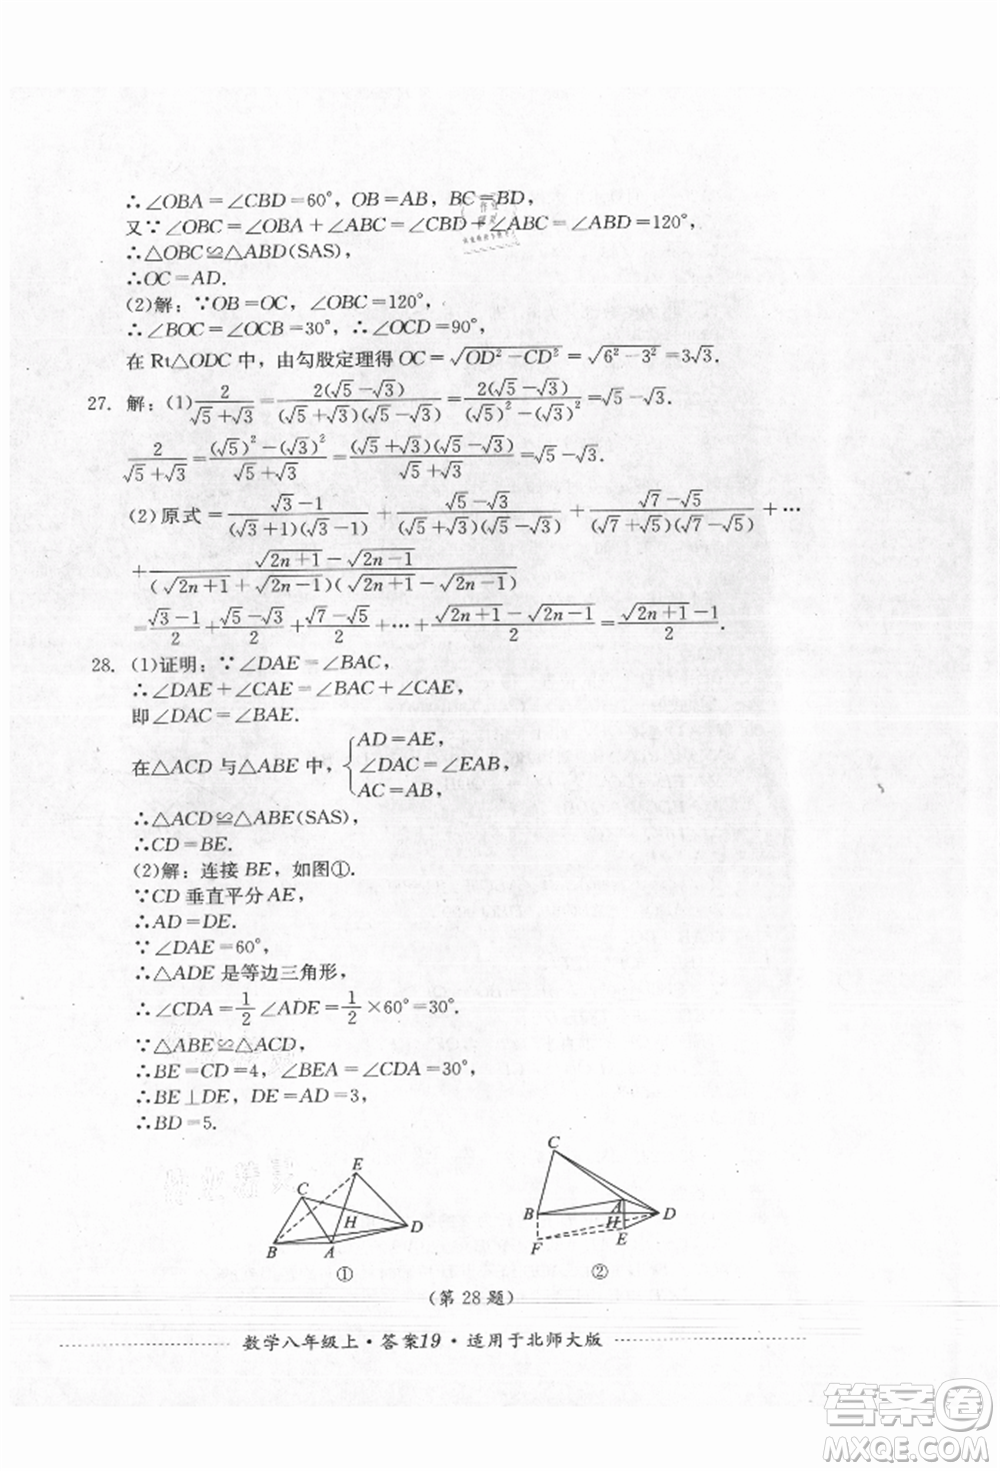 ∴∠OBA=∠CBD=60°, OB=AB, BC=BD,
又∵∠OBC=∠OBA+∠ABC=∠CBD+∠ABC=∠ABD=120°,
∴△OBC≌△ABD(SAS),
∴OC=AD.
(2)解:∵OB=OC,∠OBC=120°,
∴∠BOC=∠OCB=30°,∴∠OCD=90°,
在 Rt△ODC 中,由勾股定理得 OC=√(OD²-CD²)=√(6²-3²)=3√3.
27. 解:(1) 2/(√5+√3)=2(√5-√3)/((√5+√3)(√5-√3))=2(√5-√3)/((√5)²-(√3)²)=√5-√3.
2/(√5+√3)=((√5)²-(√3)²)/(√5+√3)=((√5+√3)(√5-√3))/(√5+√3)=√5-√3.
(2)原式=(√3-1)/((√3+1)(√3-1))+(√5-√3)/((√5+√3)(√5-√3))+(√7-√5)/((√7+√5)(√7-√5))+…
+(√(2n+1)-√(2n-1))/((√(2n+1)+√(2n-1))(√(2n+1)-√(2n-1)))
=(√3-1)/2+(√5-√3)/2+(√7-√5)/2+…+(√(2n+1)-√(2n-1))/2=(√(2n+1)-1)/2.
28. (1)证明:∵∠DAE=∠BAC,
∴∠DAE+∠CAE=∠BAC+∠CAE,
即∠DAC=∠BAE.
在△ACD 与△ABE 中,{AD=AE, ∠DAC=∠EAB, AC=AB,
∴△ACD≌△ABE(SAS),
∴CD=BE.
(2)解:连接 BE,如图①.
∵CD 垂直平分 AE,
∴AD=DE.
∵∠DAE=60°,
∴△ADE 是等边三角形,
∴∠CDA=1/2∠ADE=1/2×60°=30°.
∵△ABE≌△ACD,
∴BE=CD=4,∠BEA=∠CDA=30°,
∴BE⊥DE,DE=AD=3,
∴BD=5.
C E H D B A
①
C B A H D F E
②
(第 28 题)
数学八年级上·答案19·适用于北师大版
答案卷
MXQE.COM